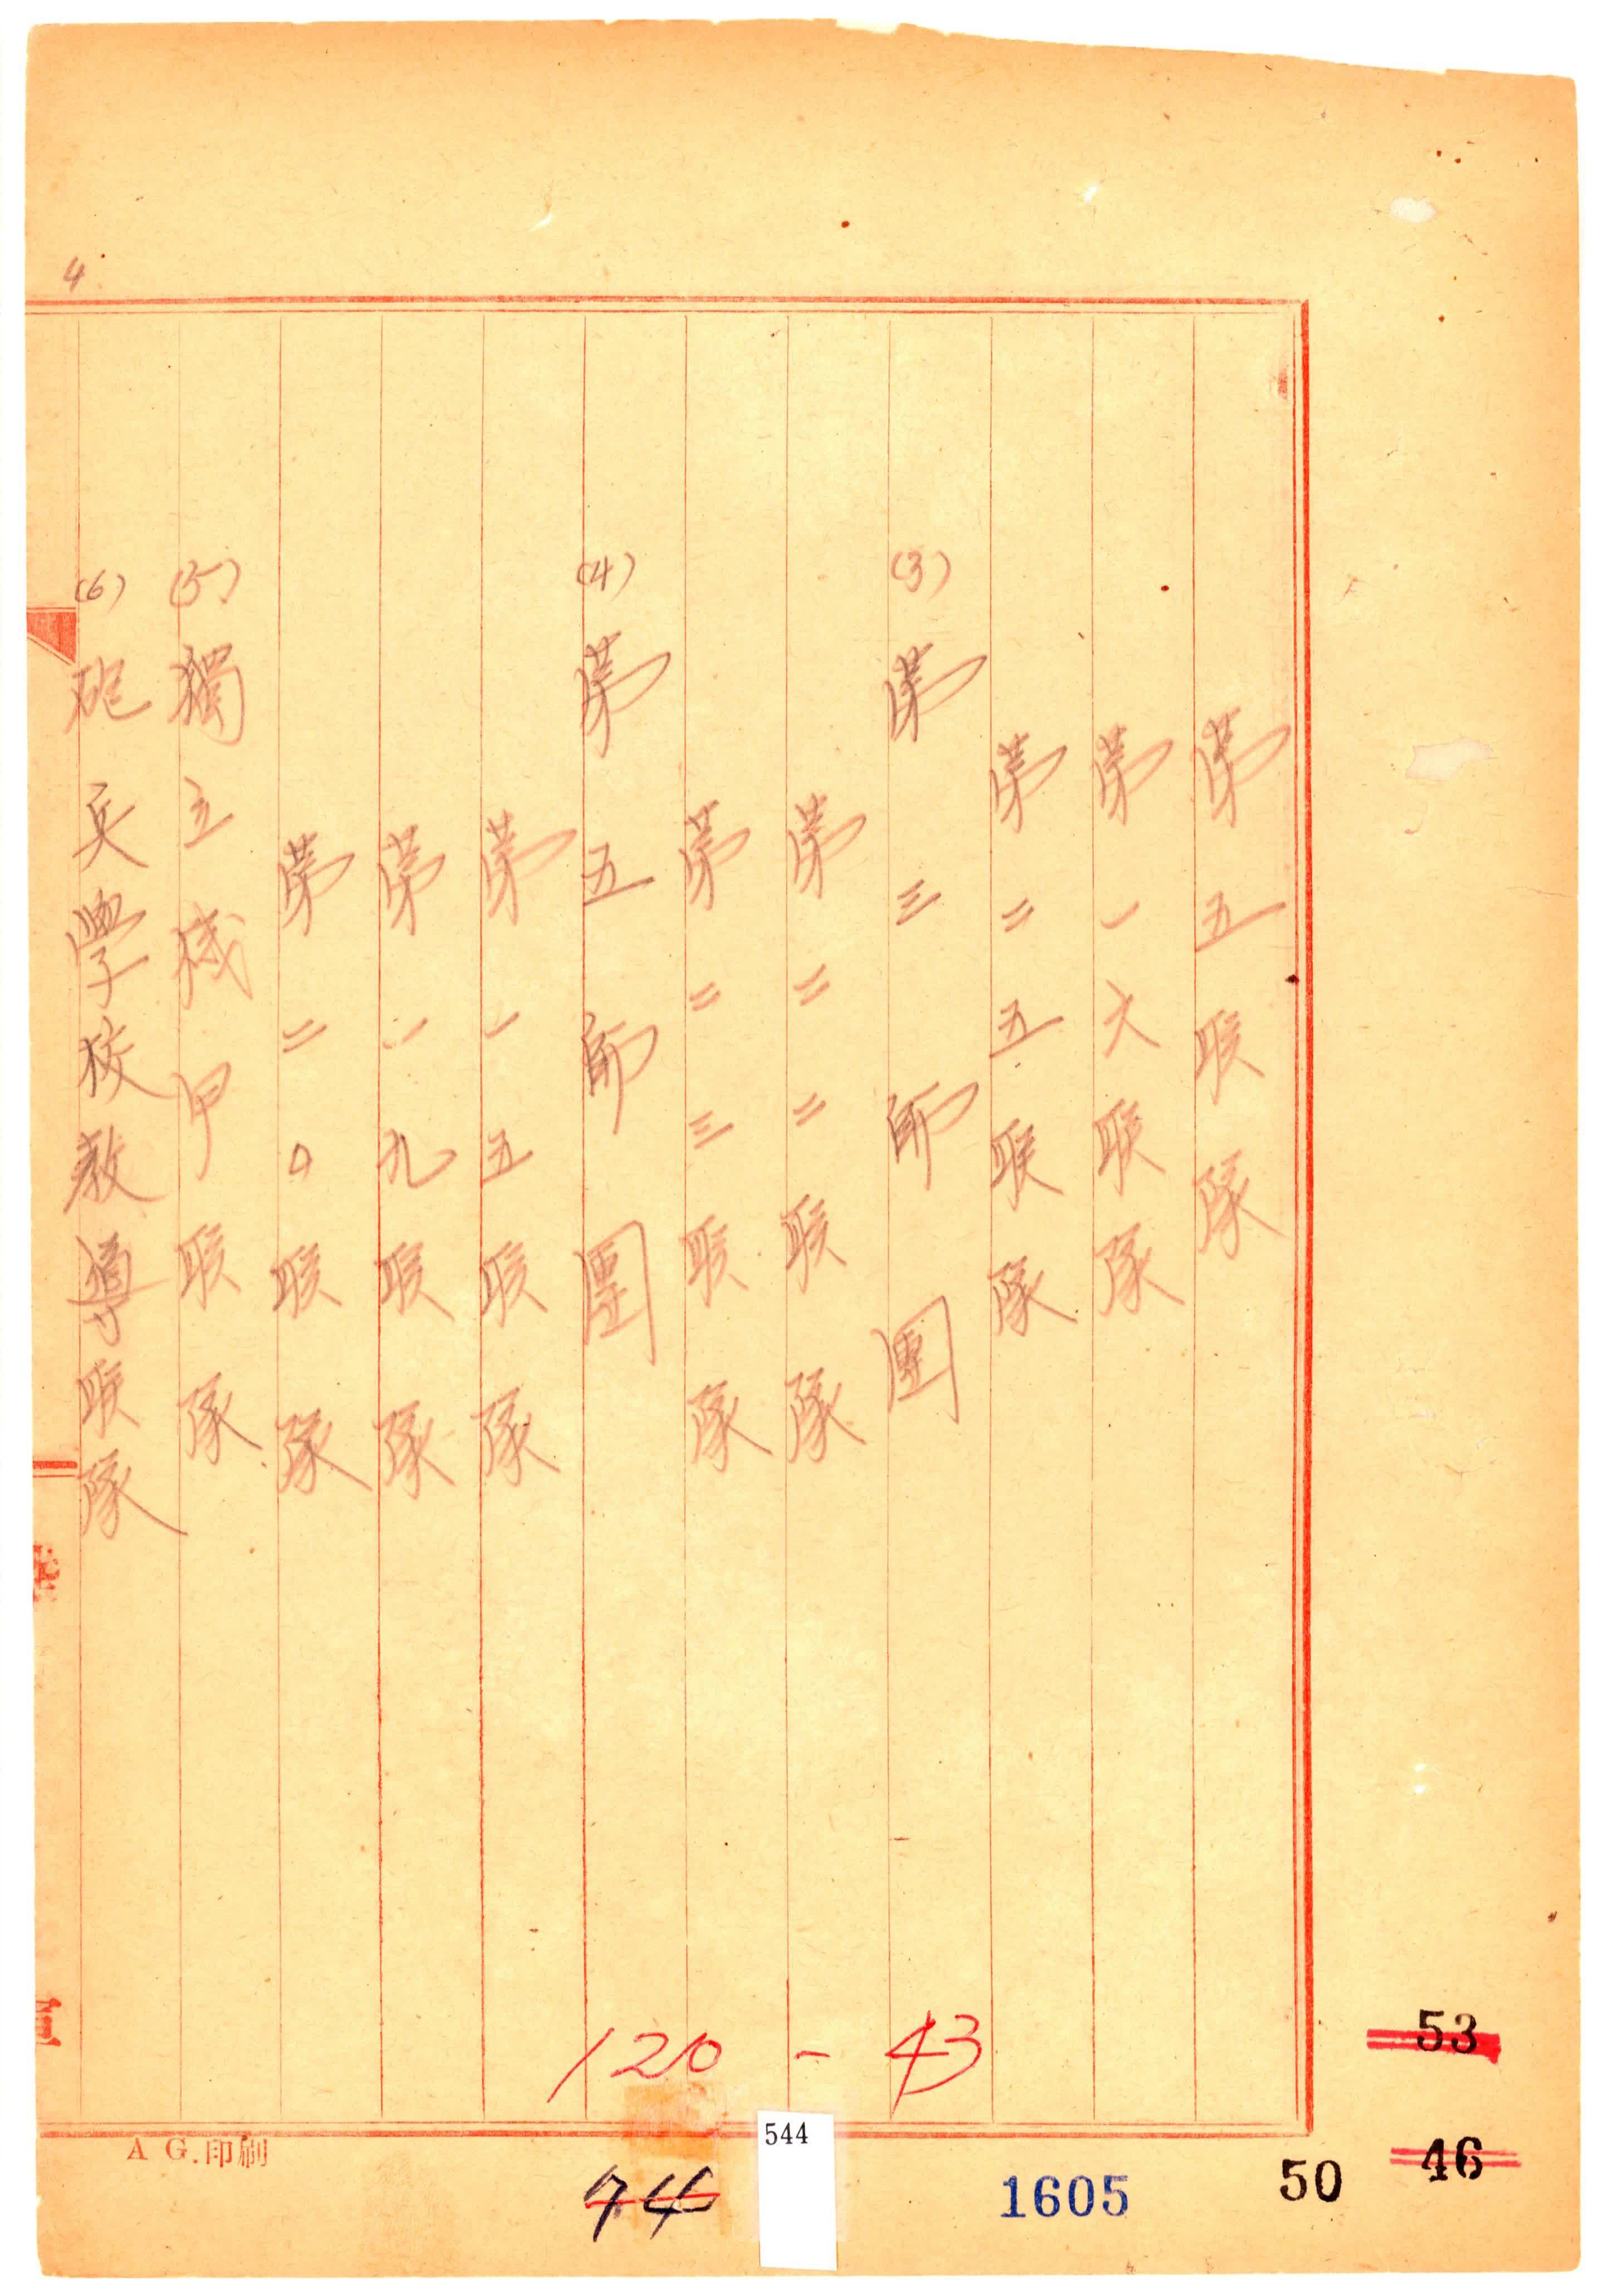 4
第五联隊
第一六联隊
第二五联隊
(3) 第三師團
第二二联隊
第二三联隊
(4) 第五師團
第一五联隊
第一九联隊
第二〇联隊
(5) 獨立機甲联隊
(6) 砲兵學校教導联隊
120-43
53
46
50
1605
544
74
A G.印刷